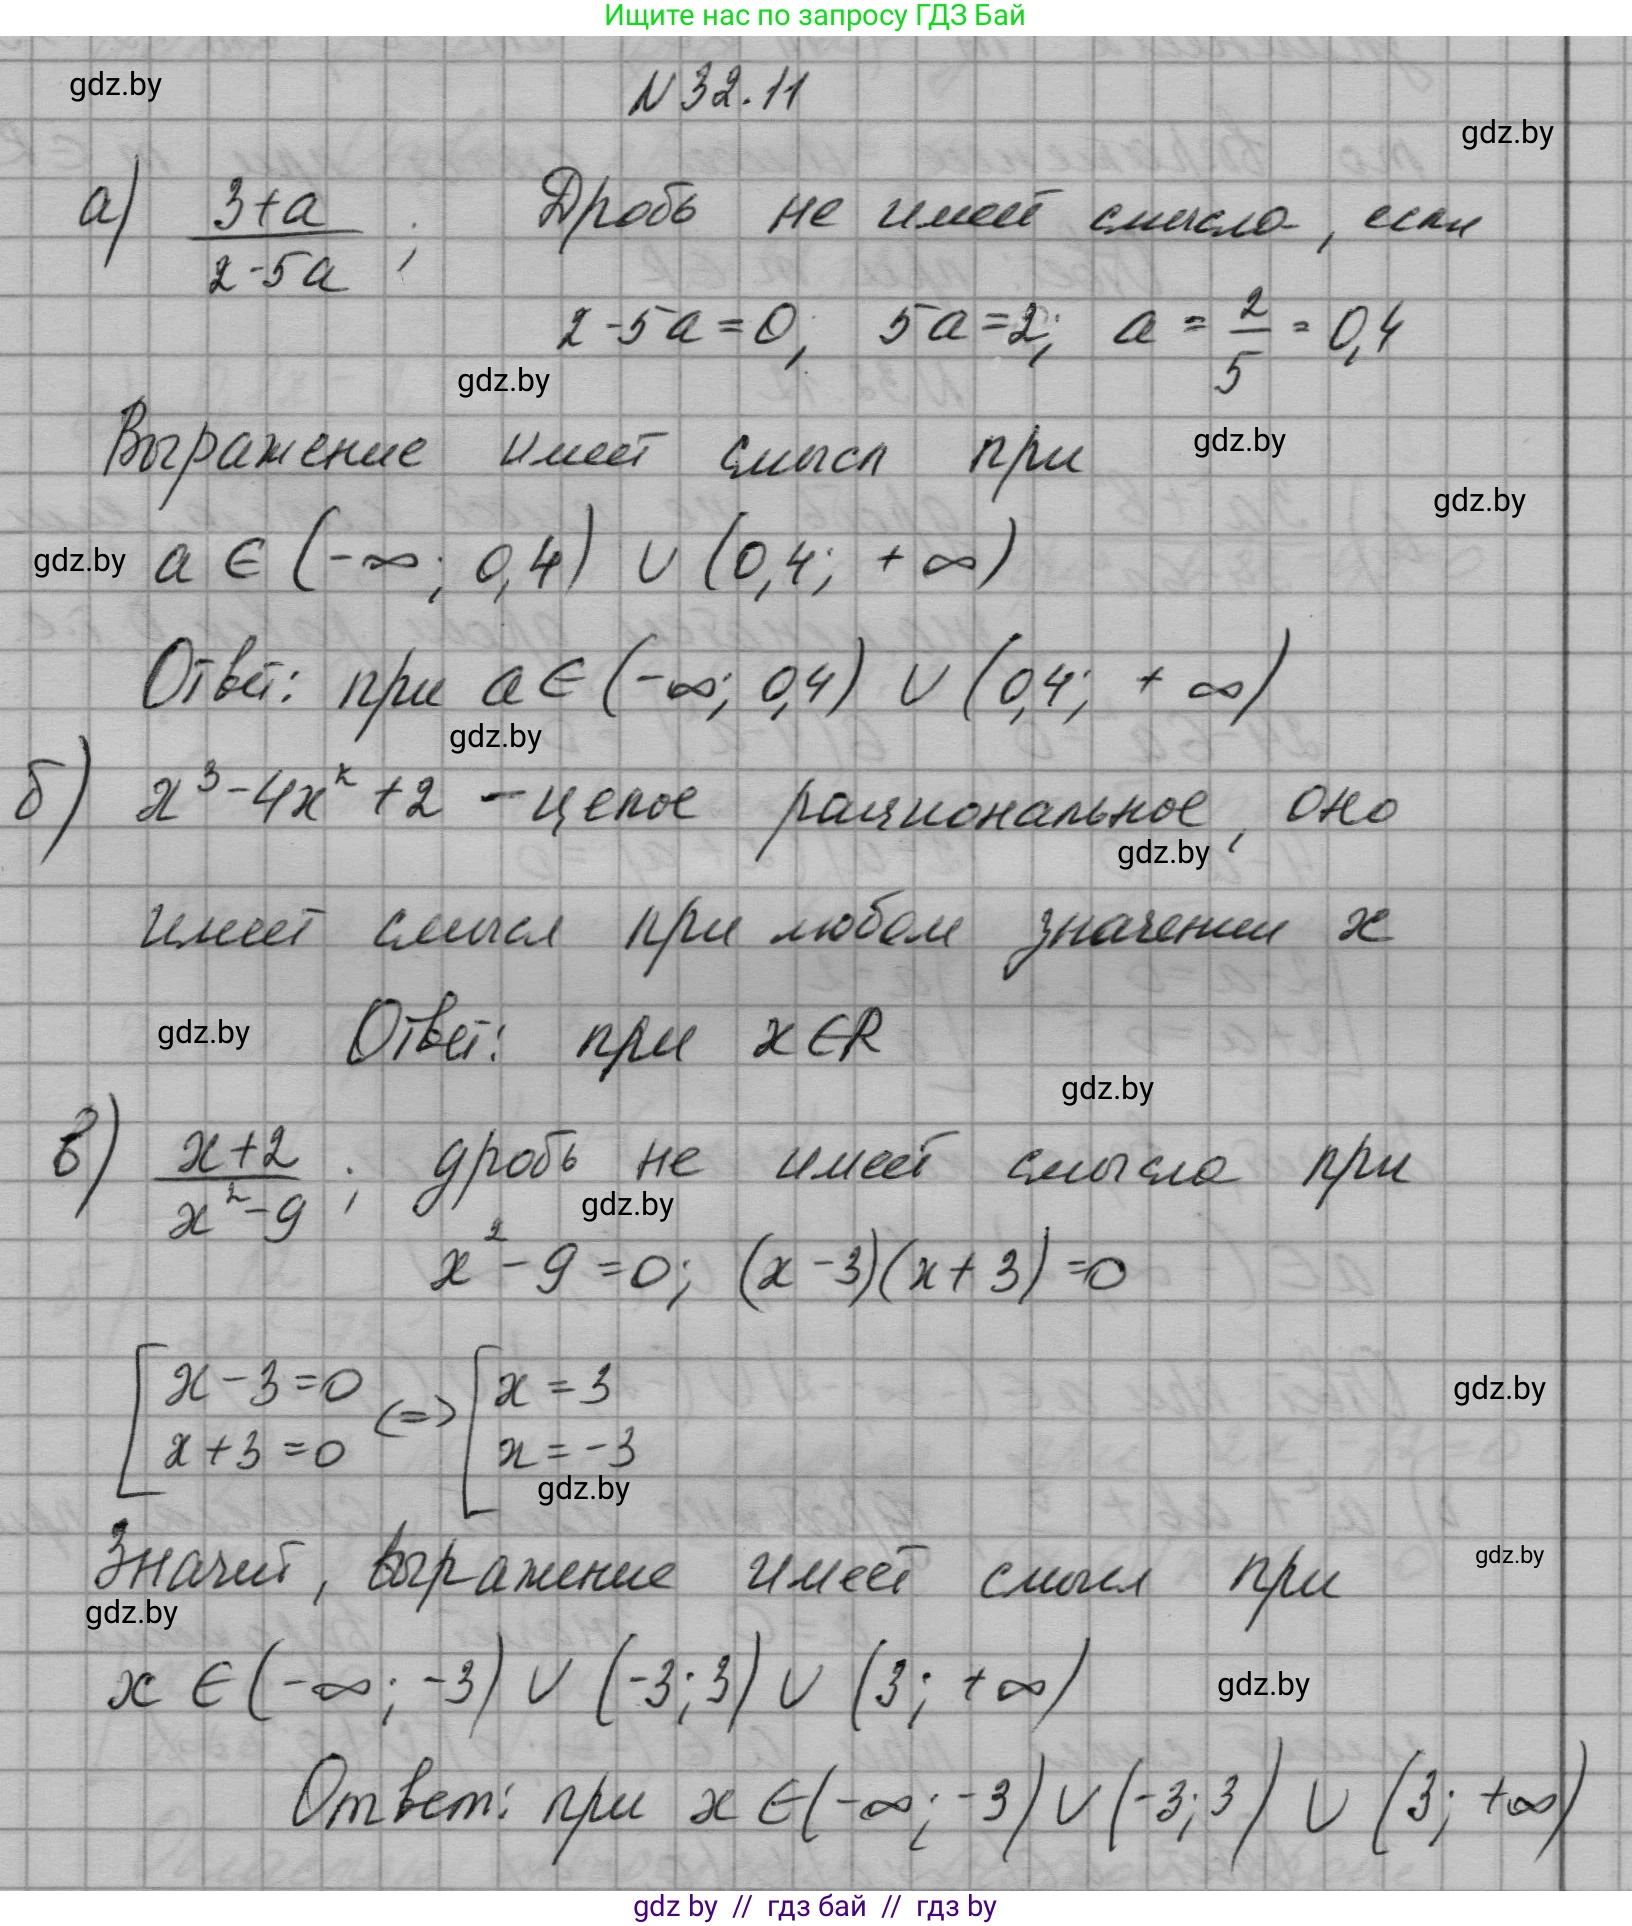 Ищите нас по запросу ГДЗ Бай
gdz.by
N 32.11
gdz.by
а) (3+a)/(2-5a) ; Дробь не имеет смысла, если
2-5a=0; 5a=2; a = 2/5 = 0,4
gdz.by
Выражение имеет смысл при
gdz.by
gdz.by
gdz.by
a ∈ (-∞; 0,4) ∪ (0,4; +∞)
Ответ: при a ∈ (-∞; 0,4) ∪ (0,4; +∞)
gdz.by
б) x³-4x²+2 - целое рациональное, оно
gdz.by
имеет смысл при любом значении x
gdz.by
Ответ: при x∈R
gdz.by
в) (x+2)/(x²-9) ; дробь не имеет смысла при
gdz.by
x²-9=0; (x-3)(x+3)=0
[x-3=0 <=> [x=3
gdz.by
x+3=0 x=-3
gdz.by
Значит, выражение имеет смысл при
gdz.by
gdz.by
x ∈ (-∞; -3) ∪ (-3; 3) ∪ (3; +∞)
gdz.by
Ответ: при x ∈ (-∞; -3) ∪ (-3; 3) ∪ (3; +∞)
gdz by // гдз бай // гдз by